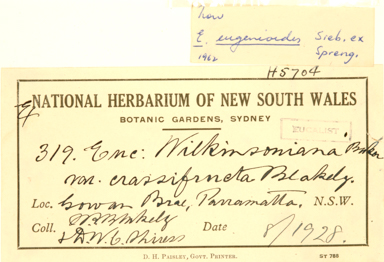 Now
E. eugenioides Sieb. ex
1962 Spreng.
H5704
NATIONAL HERBARIUM OF NEW SOUTH WALES
BOTANIC GARDENS, SYDNEY
319. Euc: Wilkinsoniana Baker
var. crassifructa Blakely.
Loc. Gowan Brae, Parramatta. N.S.W.
Coll. W. F. Blakely
& D. W. C. Shiress Date 8/1928.
D. H. PAISLEY, GOVT. PRINTER. ST 788